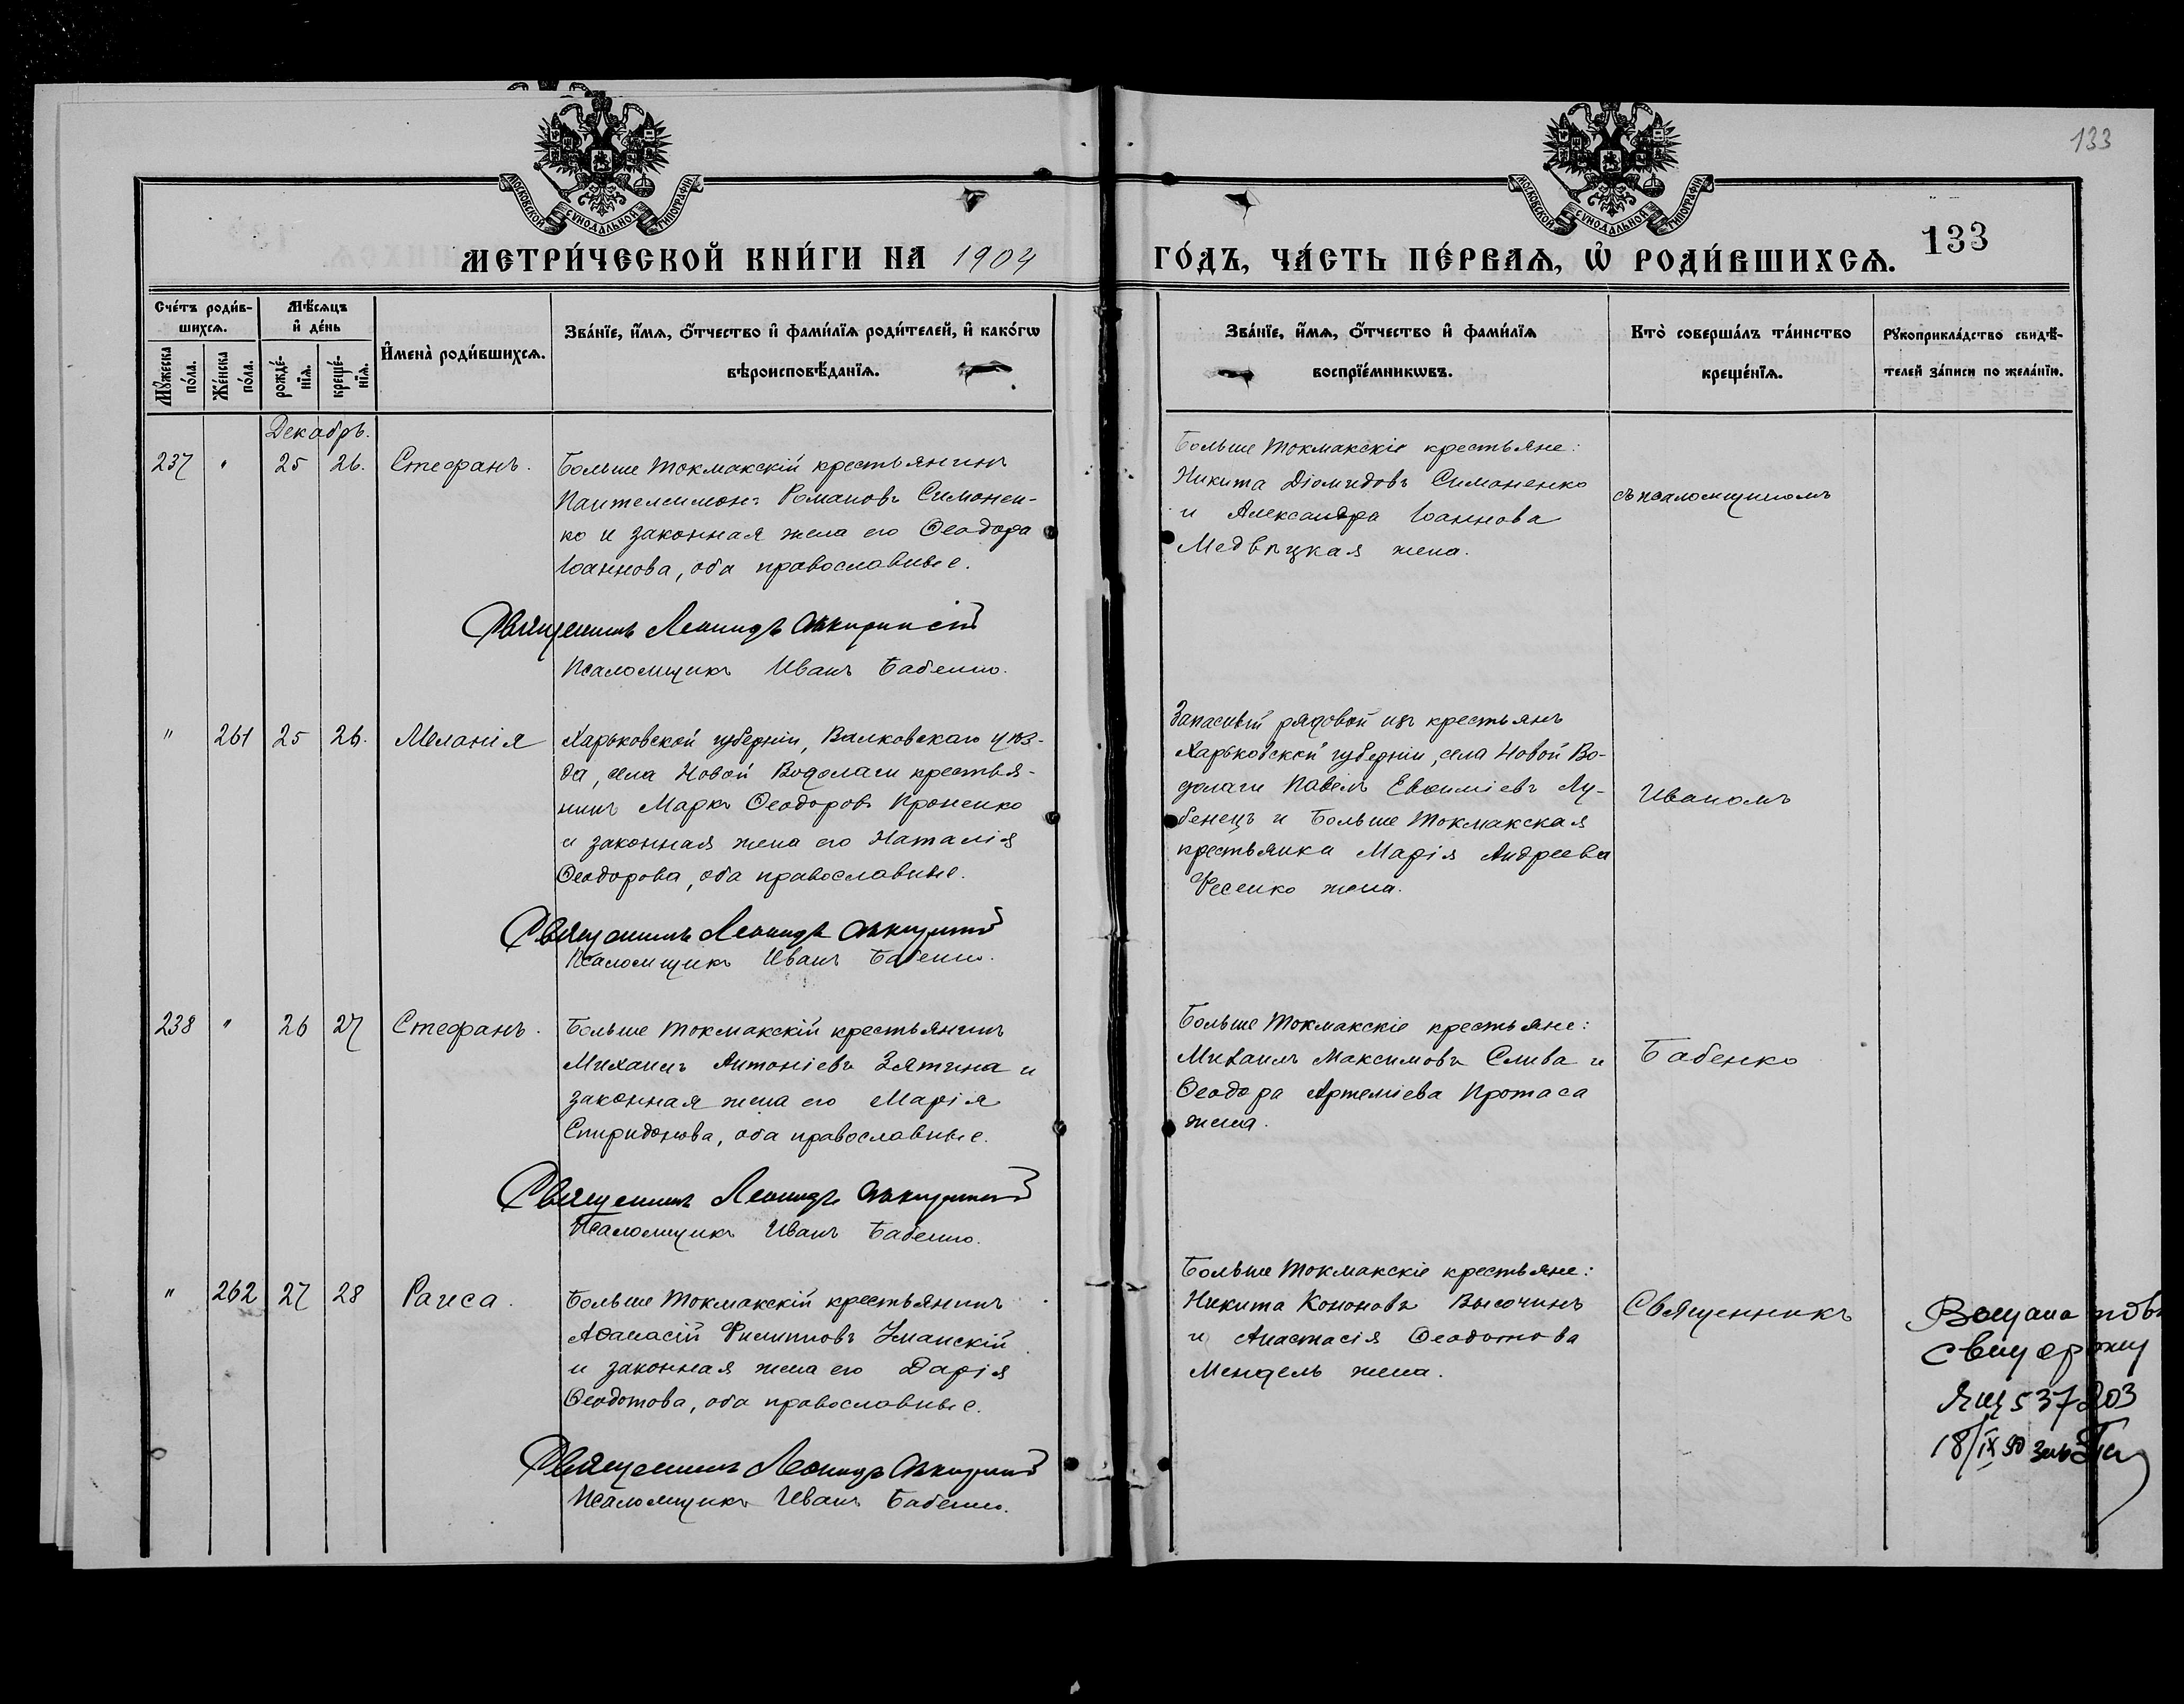 133
МОСКОВСКОЙ СУНОДАЛЬНОЙ ТИПОГРАФІИ
МОСКОВСКОЙ СУНОДАЛЬНОЙ ТИПОГРАФІИ
МЕТРИ́ЧЕСКОЙ КНИ́ГИ НА 1904
ГО́ДЪ, ЧА́СТЬ ПЕ́РВАѦ, Ѡ҆ РОДИ́ВШИХСѦ. 133
Сче́тъ роди́в-
шихсѧ.
Мꙋ́жеска по́ла.
Же́нска по́ла.
Мѣ́сѧцъ
и҆ де́нь
рожде́-
нїѧ.
креще́-
нїѧ.
И҆мена̀ роди́вшихсѧ.
Зва́нїе, и҆́мѧ, ѻ҆́тчество и҆ фами́лїѧ роди́телей, и҆ како́гѡ
вѣроисповѣ́данїѧ.
Зва́нїе, и҆́мѧ, ѻ҆́тчество и҆ фами́лїѧ
воспрїе́мникѡвъ.
Кто̀ соверша́лъ та́инство
креще́нїѧ.
Рꙋкоприкла́дство свидѣ́-
телей за́писи по жела́нїю.
Декабрь.
237 " 25 26. Стефанъ.
Больше Токмакскій крестьянинъ
Пантелеимонъ Романовъ Симонен-
ко и законная жена его Ѳеодора
Іоаннова, оба православные.
Священникъ Леонидъ
Псаломщикъ Иванъ Бабенко.
Больше Токмакскіе крестьяне:
Никита Діомидовъ Симоненко
и Александра Іоаннова
Медвѣцкая жена.
съ псаломщикомъ
" 261 25 26. Меланія
Харьковской губерніи, Валковскаго уѣз-
да, села Новой Водолаги крестья-
нинъ Маркъ Ѳеодоровъ Проненко
и законная жена его Наталія
Ѳеодорова, оба православные.
Священникъ Леонидъ
Псаломщикъ Иванъ Бабенко.
Запасный рядовой изъ крестьянъ
Харьковской губерніи, села Новой Во-
долаги Павелъ Евѳиміевъ Лу-
бенецъ и Больше Токмакская
крестьянка Марія Андреева
Фесенко жена.
Иваномъ
238 " 26 27 Стефанъ.
Больше Токмакскій крестьянинъ
Михаилъ Антоніевъ Зятина и
законная жена его Марія
Спиридонова, оба православные.
Священникъ Леонидъ
Псаломщикъ Иванъ Бабенко.
Больше Токмакскіе крестьяне:
Михаилъ Максимовъ Слива и
Ѳеодора Артеміева Протаса
жена.
Бабенко
" 262 27 28 Раиса.
Больше Токмакскій крестьянинъ
Аѳанасій Филипповъ Уманскій
и законная жена его Дарія
Ѳеодотова, оба православные.
Священникъ Леонидъ
Псаломщикъ Иванъ Бабенко.
Больше Токмакскіе крестьяне:
Никита Кононовъ Высочинъ
и Анастасія Ѳеодотова
Мендель жена.
Священникъ
537203
18/IX